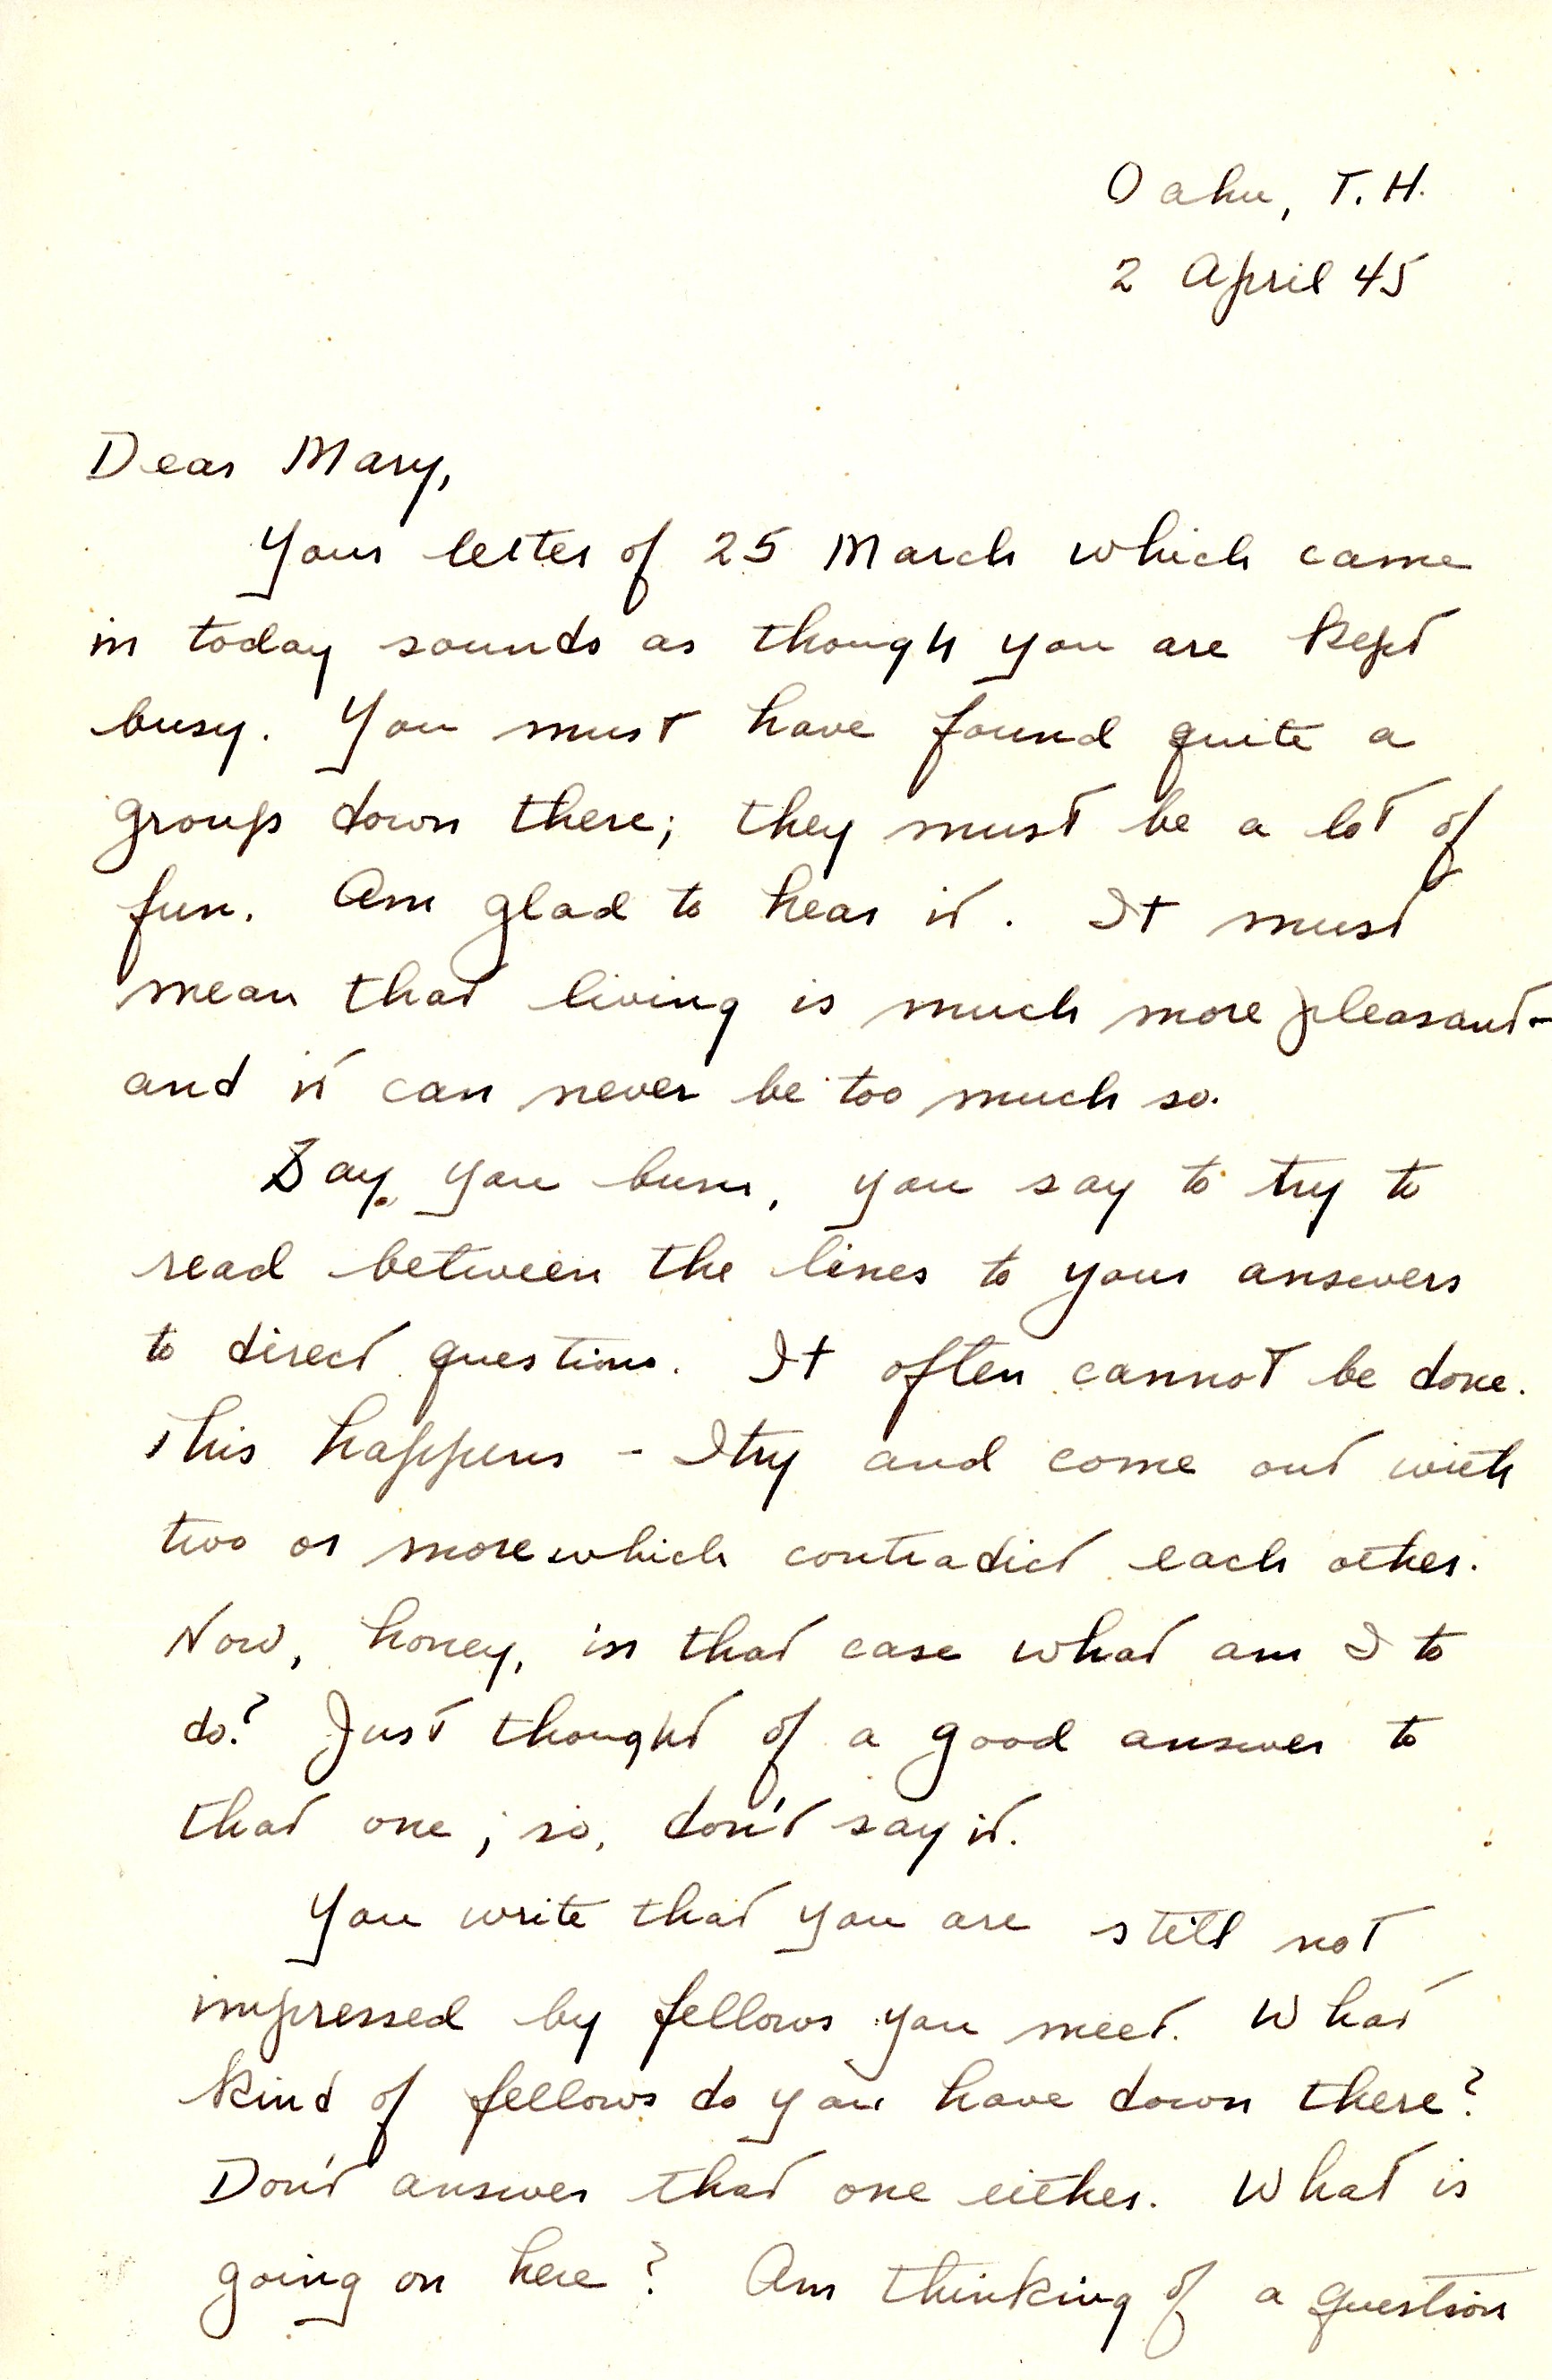 Oahu, T.H.
2 April 45
Dear Mary,
Your letter of 25 March which came
in today sounds as though you are kept
busy. You must have found quite a
group down there; they must be a lot of
fun. Am glad to hear it. It must
mean that living is much more pleasant-
and it can never be too much so.
Say you bum, you say to try to
read between the lines to your answers
to direct questions. It often cannot be done.
This happens - I try and come out with
two or more which contradict each other.
Now, honey, in that case what am I to
do? Just thought of a good answer to
that one; so, don't say it.
You write that you are still not
impressed by fellows you meet. What
kind of fellows do you have down there?
Don't answer that one either. What is
going on here? Am thinking of a question